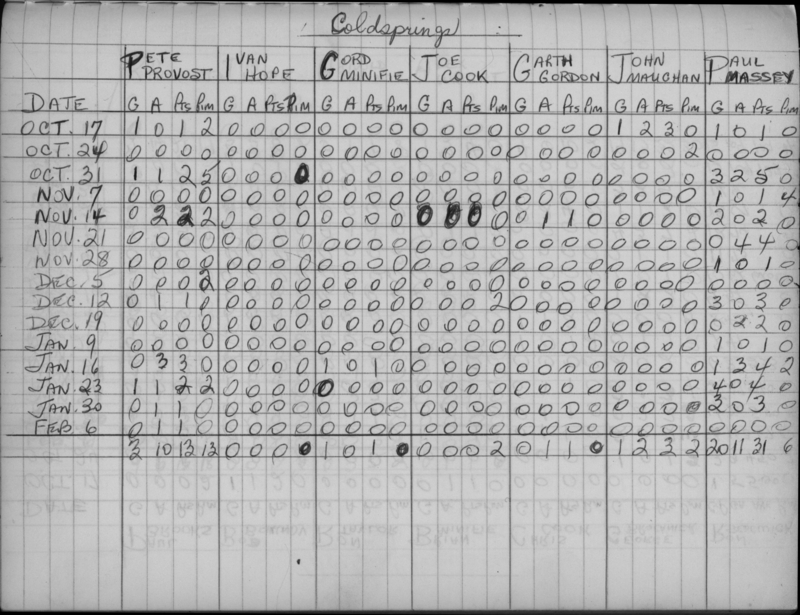 Coldsprings
PETE PROVOST IVAN HOPE GORD MINIFIE JOE COOK GARTH GORDON JOHN MAUGHAN PAUL MASSEY
DATE G A Pts Pim G A Pts Pim G A Pts Pim G A Pts Pim G A Pts Pim G A Pts Pim G A Pts Pim
OCT. 17 1 0 1 2 0 0 0 0 0 0 0 0 0 0 0 0 0 0 0 0 1 2 3 0 1 0 1 0
OCT. 24 0 0 0 0 0 0 0 0 0 0 0 0 0 0 0 0 0 0 0 0 0 0 0 2 0 0 0 0
OCT. 31 1 1 2 5 0 0 0 0 0 0 0 0 0 0 0 0 0 0 0 0 0 0 0 0 3 2 5 0
NOV. 7 0 0 0 0 0 0 0 0 0 0 0 0 0 0 0 0 0 0 0 0 0 0 0 0 1 0 1 4
NOV. 14 0 2 2 2 0 0 0 0 0 0 0 0 0 0 0 0 0 1 1 0 0 0 0 0 2 0 2 0
NOV. 21 0 0 0 0 0 0 0 0 0 0 0 0 0 0 0 0 0 0 0 0 0 0 0 0 0 4 4 0
NOV. 28 0 0 0 0 0 0 0 0 0 0 0 0 0 0 0 0 0 0 0 0 0 0 0 0 1 0 1 0
DEC. 5 0 0 0 2 0 0 0 0 0 0 0 0 0 0 0 0 0 0 0 0 0 0 0 0 0 0 0 0
DEC. 12 0 1 1 0 0 0 0 0 0 0 0 0 0 0 0 2 0 0 0 0 0 0 0 0 3 0 3 0
DEC. 19 0 0 0 0 0 0 0 0 0 0 0 0 0 0 0 0 0 0 0 0 0 0 0 0 0 2 2 0
JAN. 9 0 0 0 0 0 0 0 0 0 0 0 0 0 0 0 0 0 0 0 0 0 0 0 0 1 0 1 0
JAN. 16 0 3 3 0 0 0 0 0 1 0 1 0 0 0 0 0 0 0 0 0 0 0 0 0 1 3 4 2
JAN. 23 1 1 2 2 0 0 0 0 0 0 0 0 0 0 0 0 0 0 0 0 0 0 0 0 4 0 4 0
JAN. 30 0 1 1 0 0 0 0 0 0 0 0 0 0 0 0 0 0 0 0 0 0 0 0 0 3 0 3 0
FEB 6 0 1 1 0 0 0 0 0 0 0 0 0 0 0 0 0 0 0 0 0 0 0 0 0 0 0 0 0
3 10 13 13 0 0 0 0 1 0 1 0 0 0 0 2 0 1 1 0 1 2 3 2 20 11 31 6